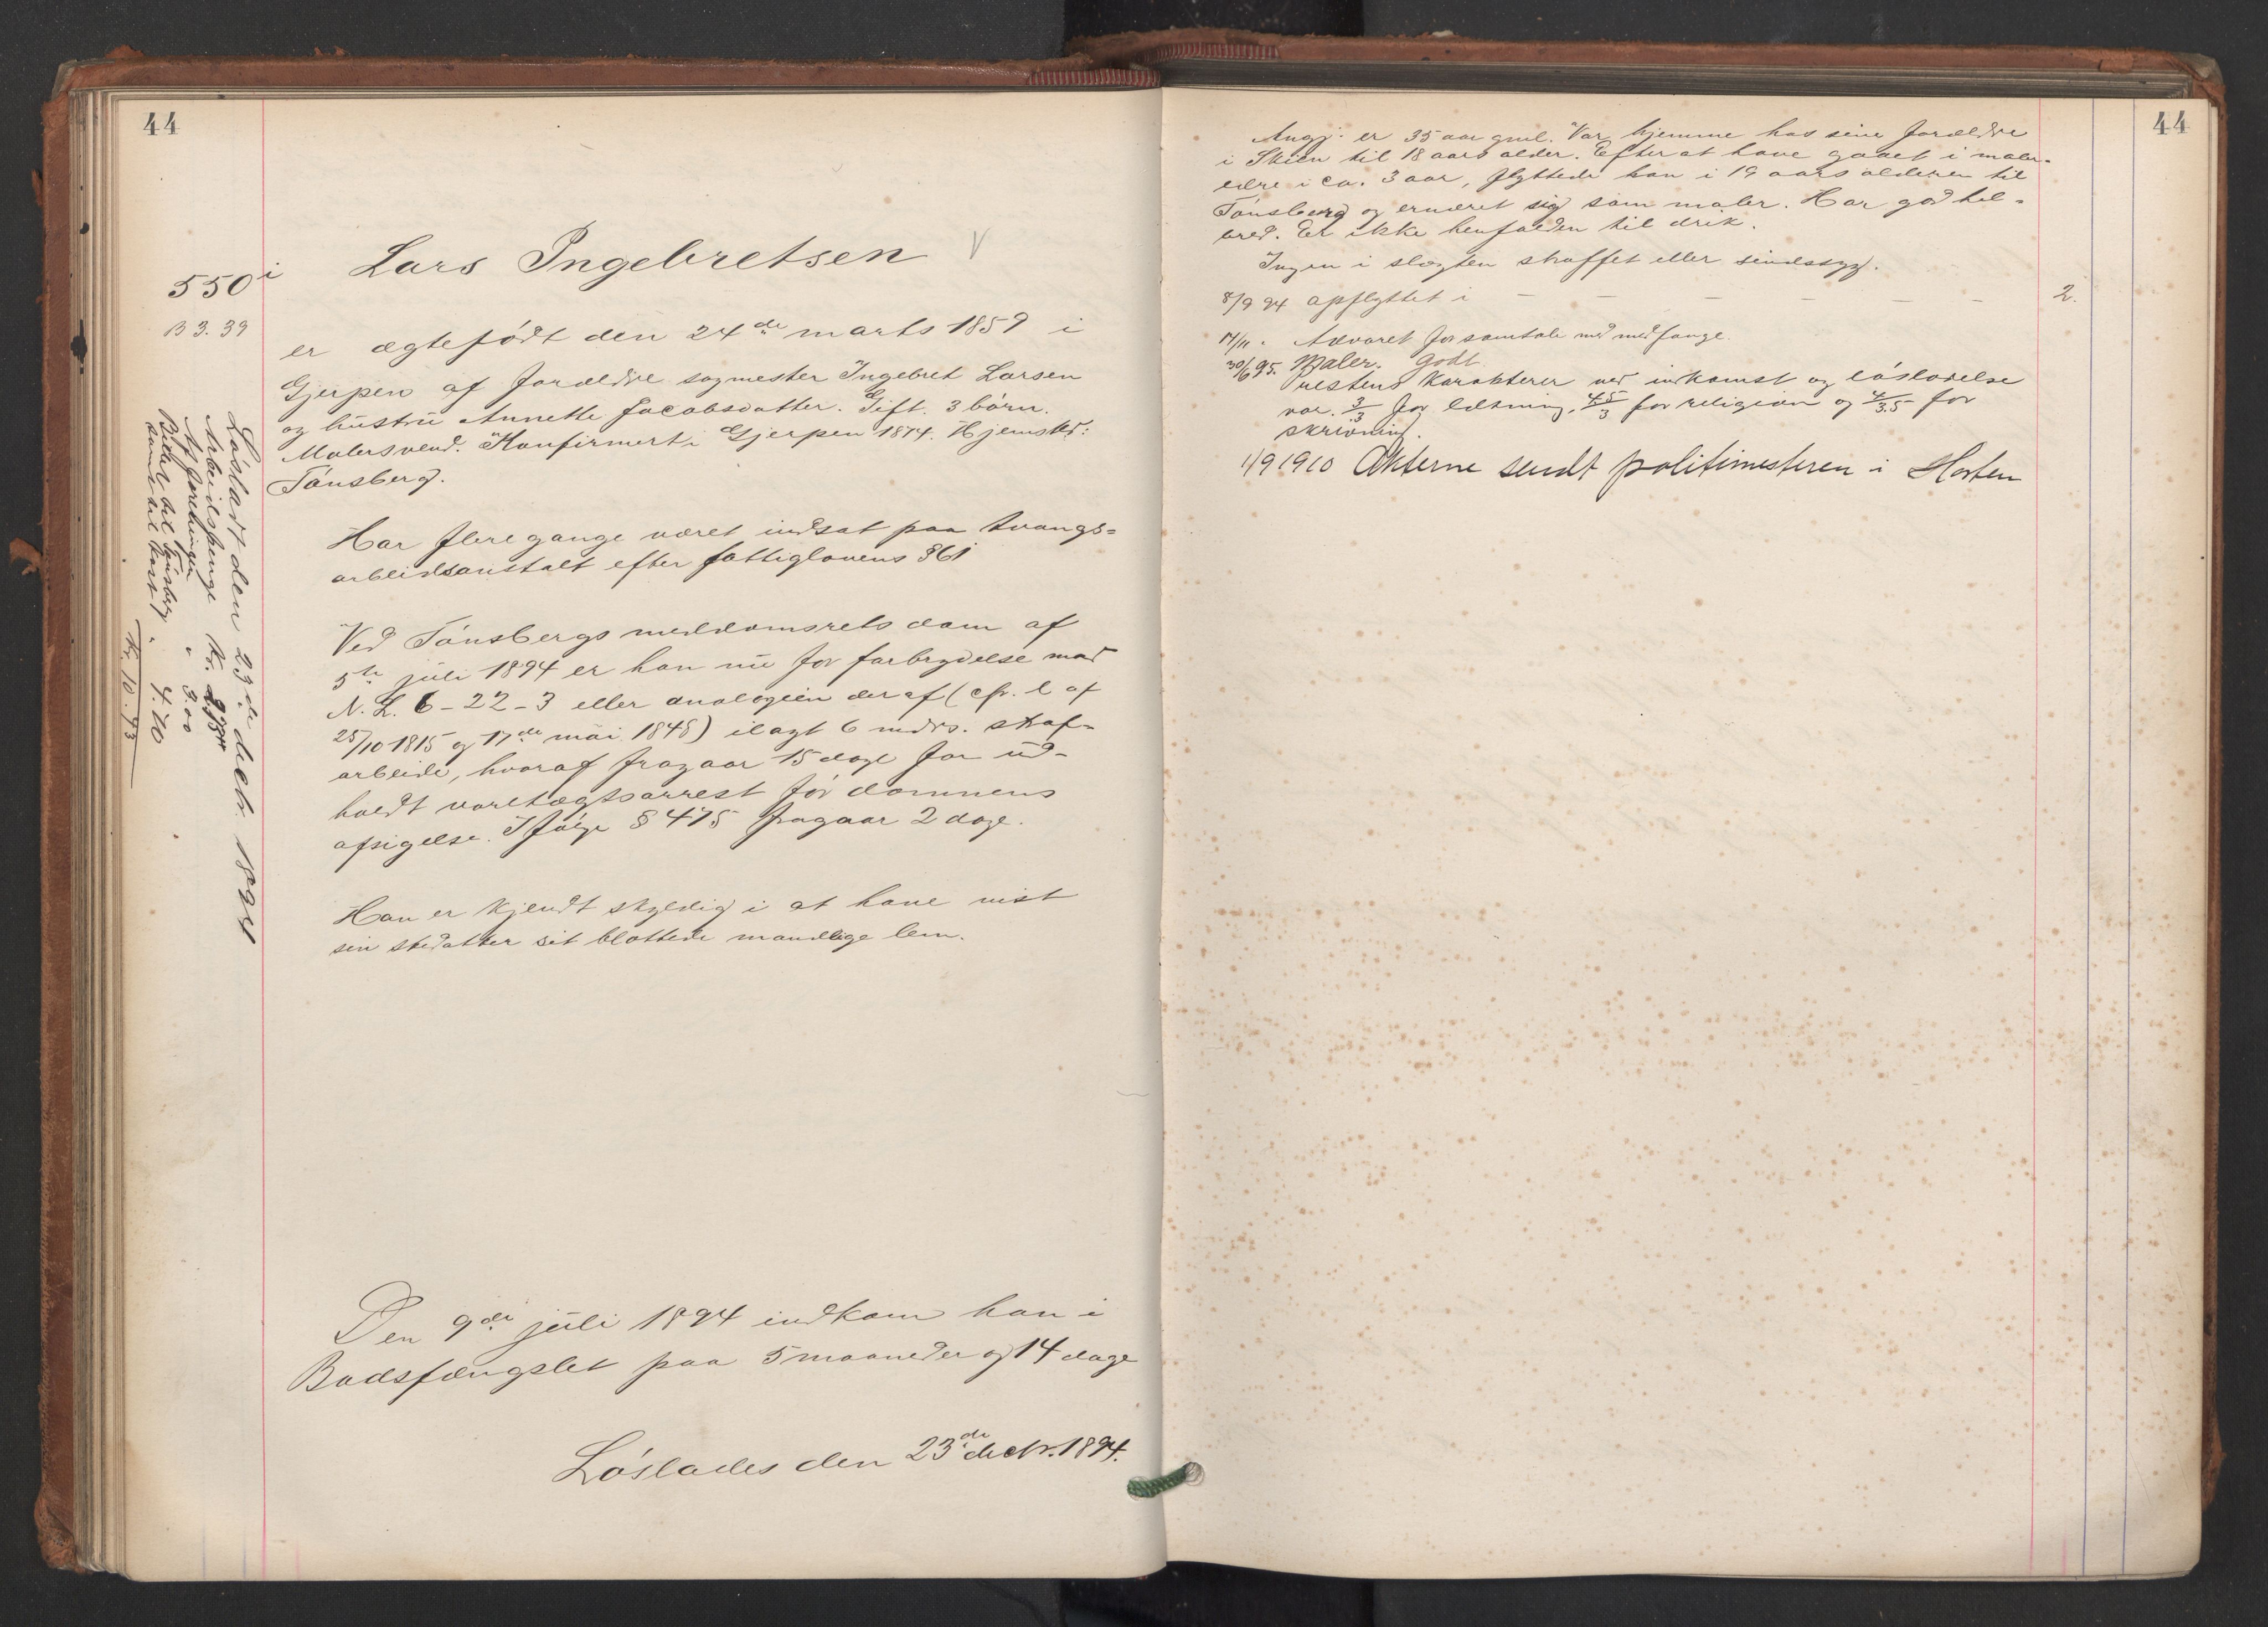 44
550 i
B 3. 39
Lars Ingebretsen
er ægtefødt den 24de marts 1859 i
Gjerpen af forældre sagmester Ingebret Larsen
og hustru Annette Jacobsdatter. Gift. 3 børn.
Malersvend. Konfirmert i Gjerpen 1874. Hjemsted:
Tønsberg.
Har flere gange været indsat paa tvangs-
arbeidsanstalt efter fattiglovens § 61
Ved Tønsbergs meddomsrets dom af
5te juli 1894 er han nu for forbrydelse mod
N. L. 6-22-3 eller analogien deraf (cfr. l af
25/10 1815 og 17de mai 1848) ilagt 6 mdrs. straf-
arbeide, hvoraf fragaar 15 dage for ud-
holdt varetægtsarrest før dommens
afsigelse. Ifølge § 475 fragaar 2 dage.
Han er kjendt skyldig i at have vist
sin stedatter sit blottede mandlige lem.
Den 9de juli 1894 indkom han i
Bodsfængslet paa 5 maaneder og 14 dage
Løslades den 23de decbr. 1894.
Løsladt den 23de decbr. 1894
Arbeidspenge Kr.
Af foreningen " 3.00
Billet til Tønsberg
samt til kost " 4.70
Kr. 10.73
44
Angj. er 35 aar gml. Var hjemme hos sine forældre
i Skien til 18 aars alder. Efter at have gaaet i maler-
lære i ca. 3 aar, flyttede han i 19 aars alderen til
Tønsberg og ernæret sig som maler. Har god hel-
bred. Er ikke henfalden til drik.
Ingen i slægten straffet eller sindssyg.
8/9 94 opflyttet i – – – – – – 2.
14/11 . Advaret for samtale med medfange.
30/6 95. Maler. Godt
Prestens karakterer ved indkomst og løsladelse
var. 3/3 for læsning, 4.5/3 for religion og 4/3.5 for
skrivning.
1/9 1910 Akterne sendt politimesteren i Horten